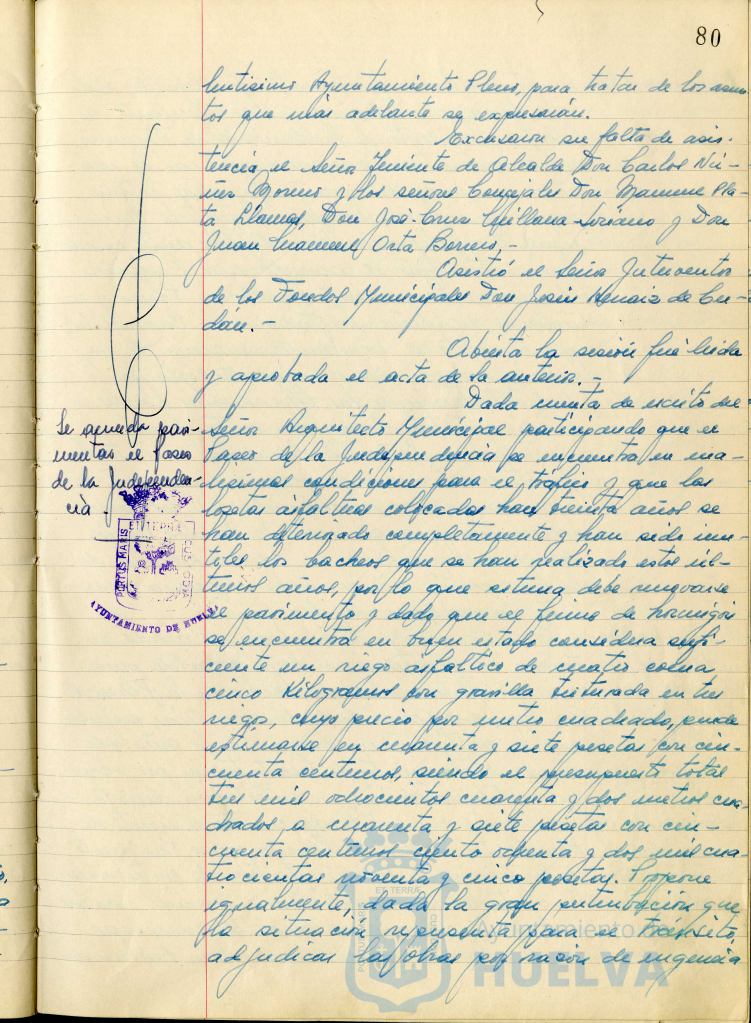 80
lentisimo Ayuntamiento Pleno, para tratar de los asun-
tos que más adelante se expresarán.
Excusaron su falta de asis-
tencia el Señor Teniente de Alcalde Don Carlos Nú-
ñez Moreno y los señores Concejales Don Mamme Pla-
ta Llamas, Don José-Cruz Quillana-Soriano y Don
Juan Manuel Orta Borrero.-
Asistió el Señor Interventor
de los Fondos Municipales Don Jesús Arnaiz de
dán.-
Abierta la sesión fué leida
y aprobada el acta de la anterior.-
Dada cuenta de escrito del
Señor Arquitecto Municipal participando que el
Paseo de la Independencia se encuentra en ma-
lisimas condiciones para el tráfico y que las
losetas asfalticas colocadas han treinta años se
han deteriorado completamente y han sido inu-
tiles, los bacheos que se han realizado estos úl-
timos años, por lo que estima debe renovarse
el pavimento y dado que el firme de hormigón
se encuentra en buen estado considera sufi-
ciente un riego asfaltico de cuatro coma
cinco Kilogramos con gravilla triturada en tres
riegos, cuyo precio por metro cuadrado, puede
estimarse en cuarenta y siete pesetas con cin-
cuenta centimos, siendo el presupuesto total
tres mil ochocientos cuarenta y dos metros cua-
drados a cuarenta y siete pesetas con cin-
cuenta centimos ciento ochenta y dos mil cua-
trocientas noventa y cinco pesetas. Propone
igualmente, dada la gran perturbación que
la situación representa para el tránsito,
adjudicar las obras por razón de urgencia
Se acuerda pavi-
mentar el paseo
de la Independen-
cia.-
PORTUS MARIS ET TERRAE CUSTODIA
AYUNTAMIENTO DE HUELVA
Ayuntamiento
HUELVA